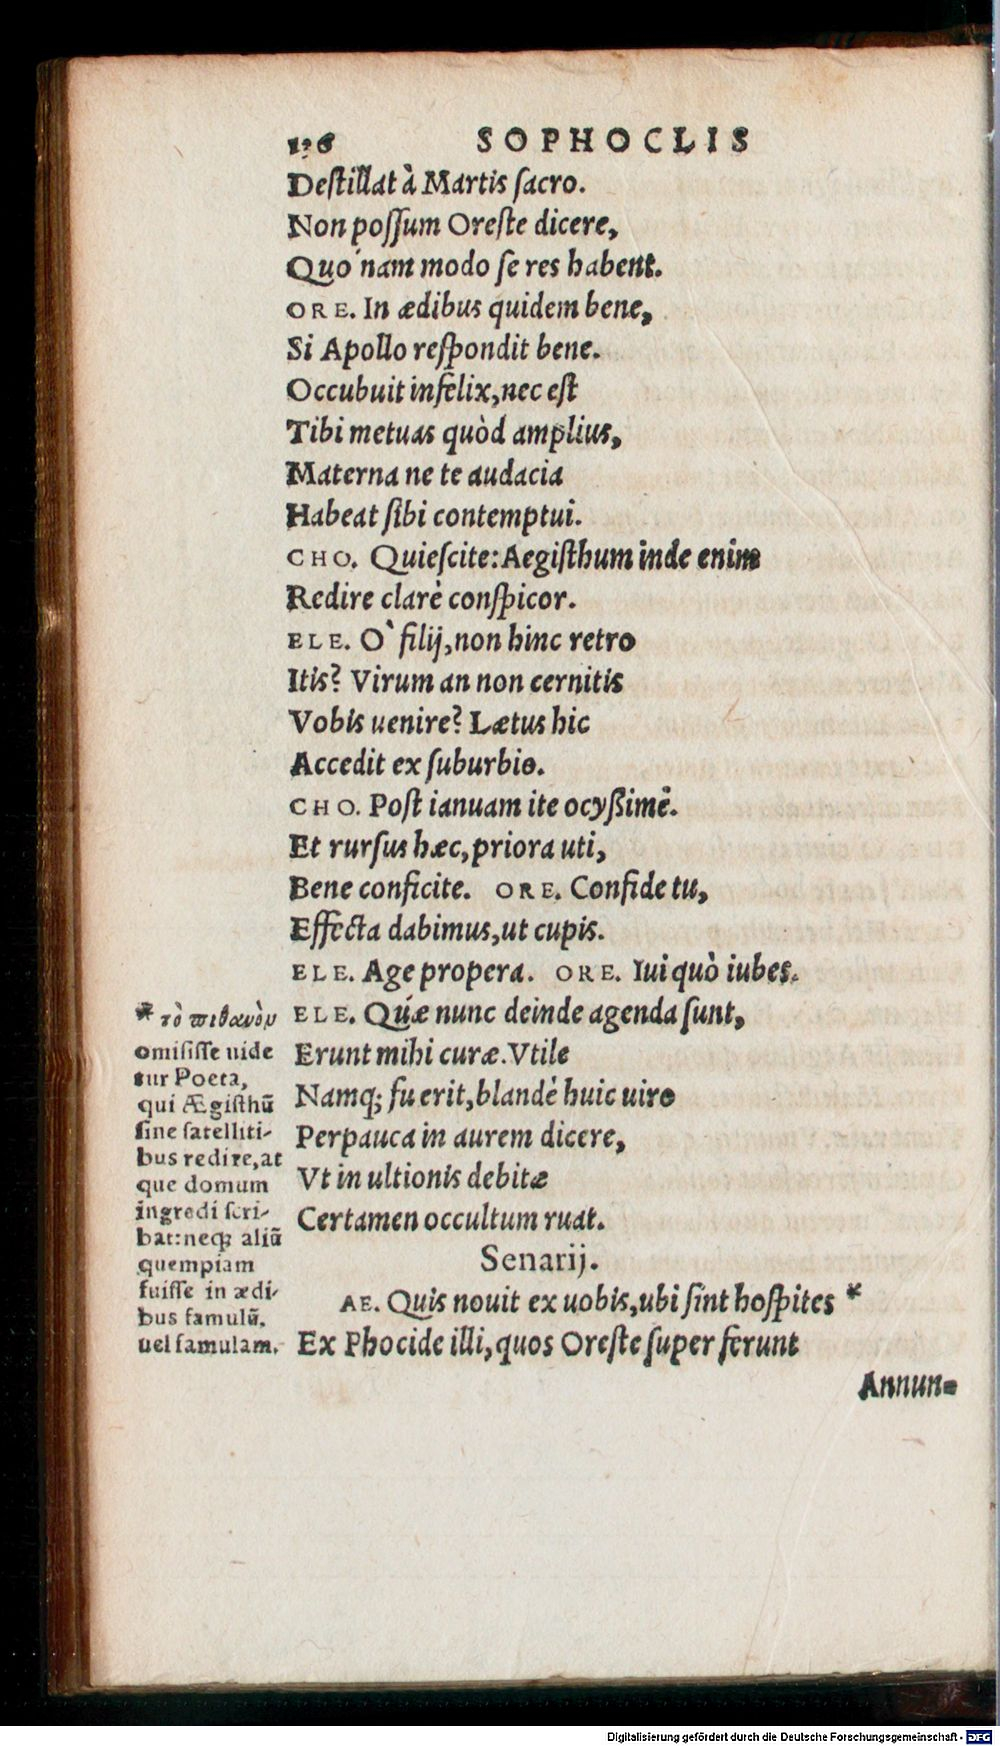 126 SOPHOCLIS
Destillat à Martis sacro.
Non possum Oreste dicere,
Quo´nam modo se res habent.
ORE. In ædibus quidem bene,
Si Apollo respondit bene.
Occubuit infelix, nec est
Tibi metuas quòd amplius,
Materna ne te audacia
Habeat sibi contemptui.
CHO. Quiescite: Aegisthum inde enim
Redire clarè conspicor.
ELE. O` filij, non hinc retro
Itis? Virum an non cernitis
Vobis uenire? Lætus hic
Accedit ex suburbio.
CHO. Post ianuam ite ocyßimè.
Et rursus hæc, priora uti,
Bene conficite. ORE. Confide tu,
Effecta dabimus, ut cupis.
ELE. Age propera. ORE. Iui quò iubes.
ELE. Quæ nunc deinde agenda sunt,
Erunt mihi curæ. Vtile
Namq; fuerit, blandè huic uiro
Perpauca in aurem dicere,
Vt in ultionis debitæ
Certamen occultum ruat.
Senarij.
AE. Quis nouit ex uobis, ubi sint hospites *
Ex Phocide illi, quos Oreste super ferunt
Annun=
* τὸ πιθανὸν
omisisse uide
tur Poeta,
qui Ægisthū
sine satelliti-
bus redire, at
que domum
ingredi scri-
bat: neq; aliū
quempiam
fuisse in ædi-
bus famulū,
uel famulam.
Digitalisierung gefördert durch die Deutsche Forschungsgemeinschaft - DFG